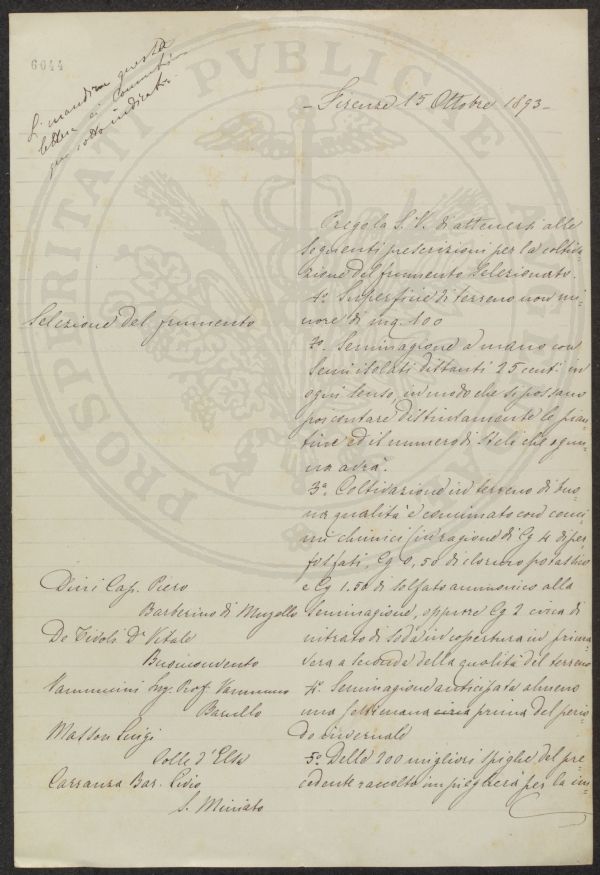 6044
Si mandi questa
lettera ai Committenti
qui sotto indicati.
- Firenze 15 Ottobre 1893 -
Prego la S. V. di attenersi alle
seguenti prescrizioni per la coltiva=
zione del frumento selezionato.
1º Superficie di terreno non mi=
nore di mq. 100
Selezione del frumento
2º. Seminagione a mano con
semi isolati distanti 25 centi in
ogni senso, in modo che si possano
poi contare distintamente le pian=
tine ed il numero di steli che ognu=
na avrà.
3º. Coltivazione in terreno di buo=
na qualità e concimato con conci=
mi chimici in ragione di Cg 4 di per
fosfati, Cg 0,50 di cloruro potassico
e Cg 1.50 di solfato ammonico alla
seminagione, oppure Cg 2 circa di
nitrato di soda in copertura in prima=
vera a seconda della qualità del terreno
4º. Seminagione anticipata almeno
una settimana circa prima del perio=
do invernale
5º. Delle 200 migliori spighe del pre=
cedente raccolto impiegherà per la
Dini Cap. Piero
Barberino di Mugello
De Vitale
Buonconvento
Vannuccini Ing. Prof. Vannuccio
Masson Luigi
Colle d'Elsa
Carranza Bar. Livio
S. Miniato
PROSPERITATI PUBLICAE AUGENDAE